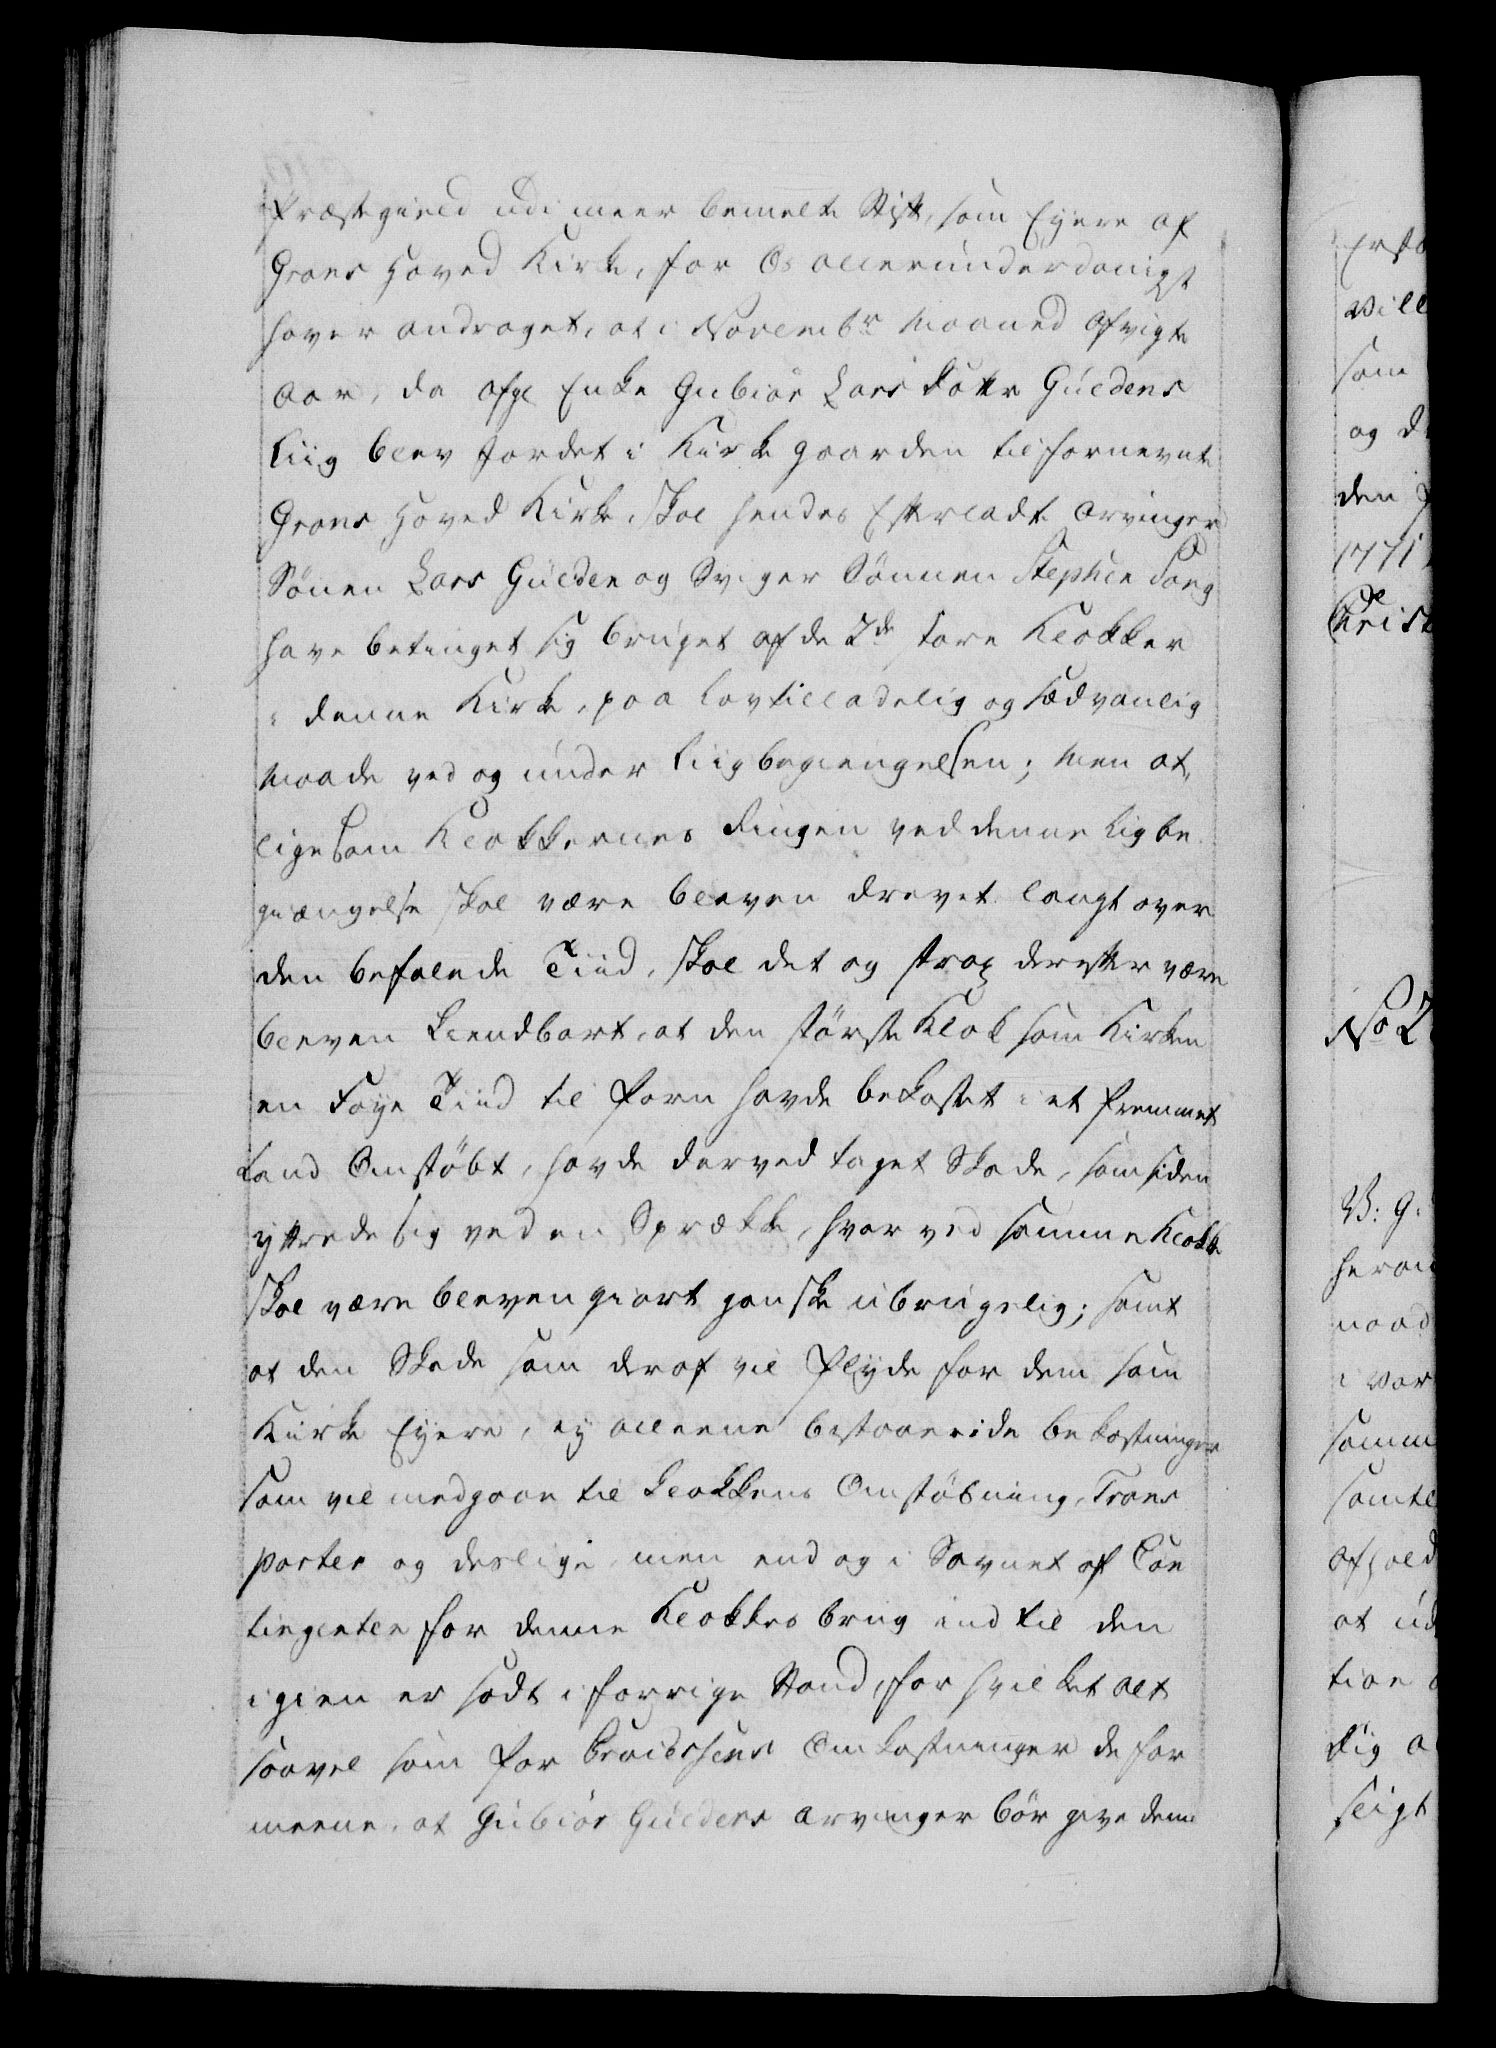 Præstegield udi meer bemelte Stift, som Eyere af
Grans Hoved Kirke, for Os allerunderdanigst
haver andraget, at i Novembr Maaned afvigte
Aar, da afg. Enke Gubiør Lars Datter Guldens
Liig blev jordet i Kirke gaarden til fornevnte
Grans Hoved Kirke, skal hendes Efterladte Arvinger
Sönen Lars Gulden og Sviger Sönnen Stephen
have betinget sig bruget af de 2de store Klokker
i denne Kirke, paa lovtilladelig og sædvanlig
Maade ved og under Liigbegiengelsen; Men at,
ligesom Klokkernes Ringen ved denne Ligbe
giængelse skal være bleven drevet langt over
den befalede Tiid, skal det og strax derefter være
bleven kiendbart, at den störste Klok som Kirken
en Føye Tiid til forn havde bekostet i et fremmet
Land Omstöbt, havde derved taget Skade, som siden
yttrede sig ved en Sprække, hvor ved samme Klokke
skal være bleven giort ganske ubrugelig; samt
at den Skade som deraf vil flyde for dem som
Kirke Eyere, ey alleene bestaaer i de bekostninger
som vil medgaae til Klokkens Omstöbning, Trans
porter og deslige, men end og i Savnet af Con
tingenten for denne Klokkes brug ind til den
igien er sadt i forrige Stand, for hvilket alt
saavel som for Omkostninger de for
meene, at Gubiør Guldens Arvinger bör give dem